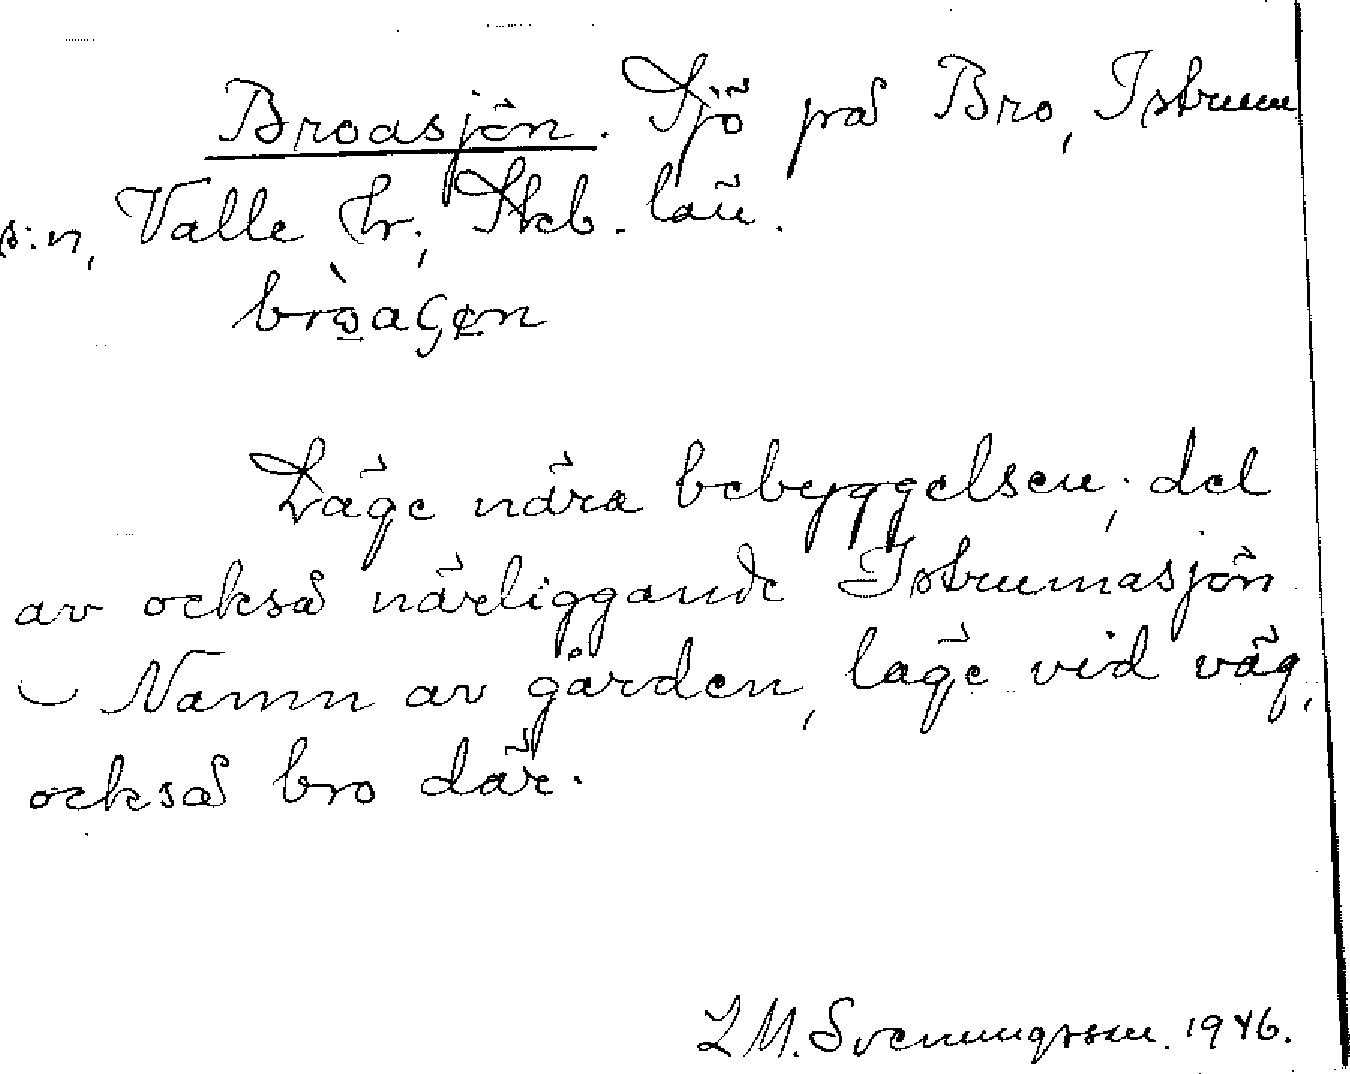 Broasjön. Sjö på Bro, Istrum
s:n, Valle hr; Skb. län.
bròaɕøn
Läge nära bebyggelsen; del
av också närliggande Istrumasjön
– Namn av gården, läge vid väg,
också bro där.
L M. Svenungsson. 1946.